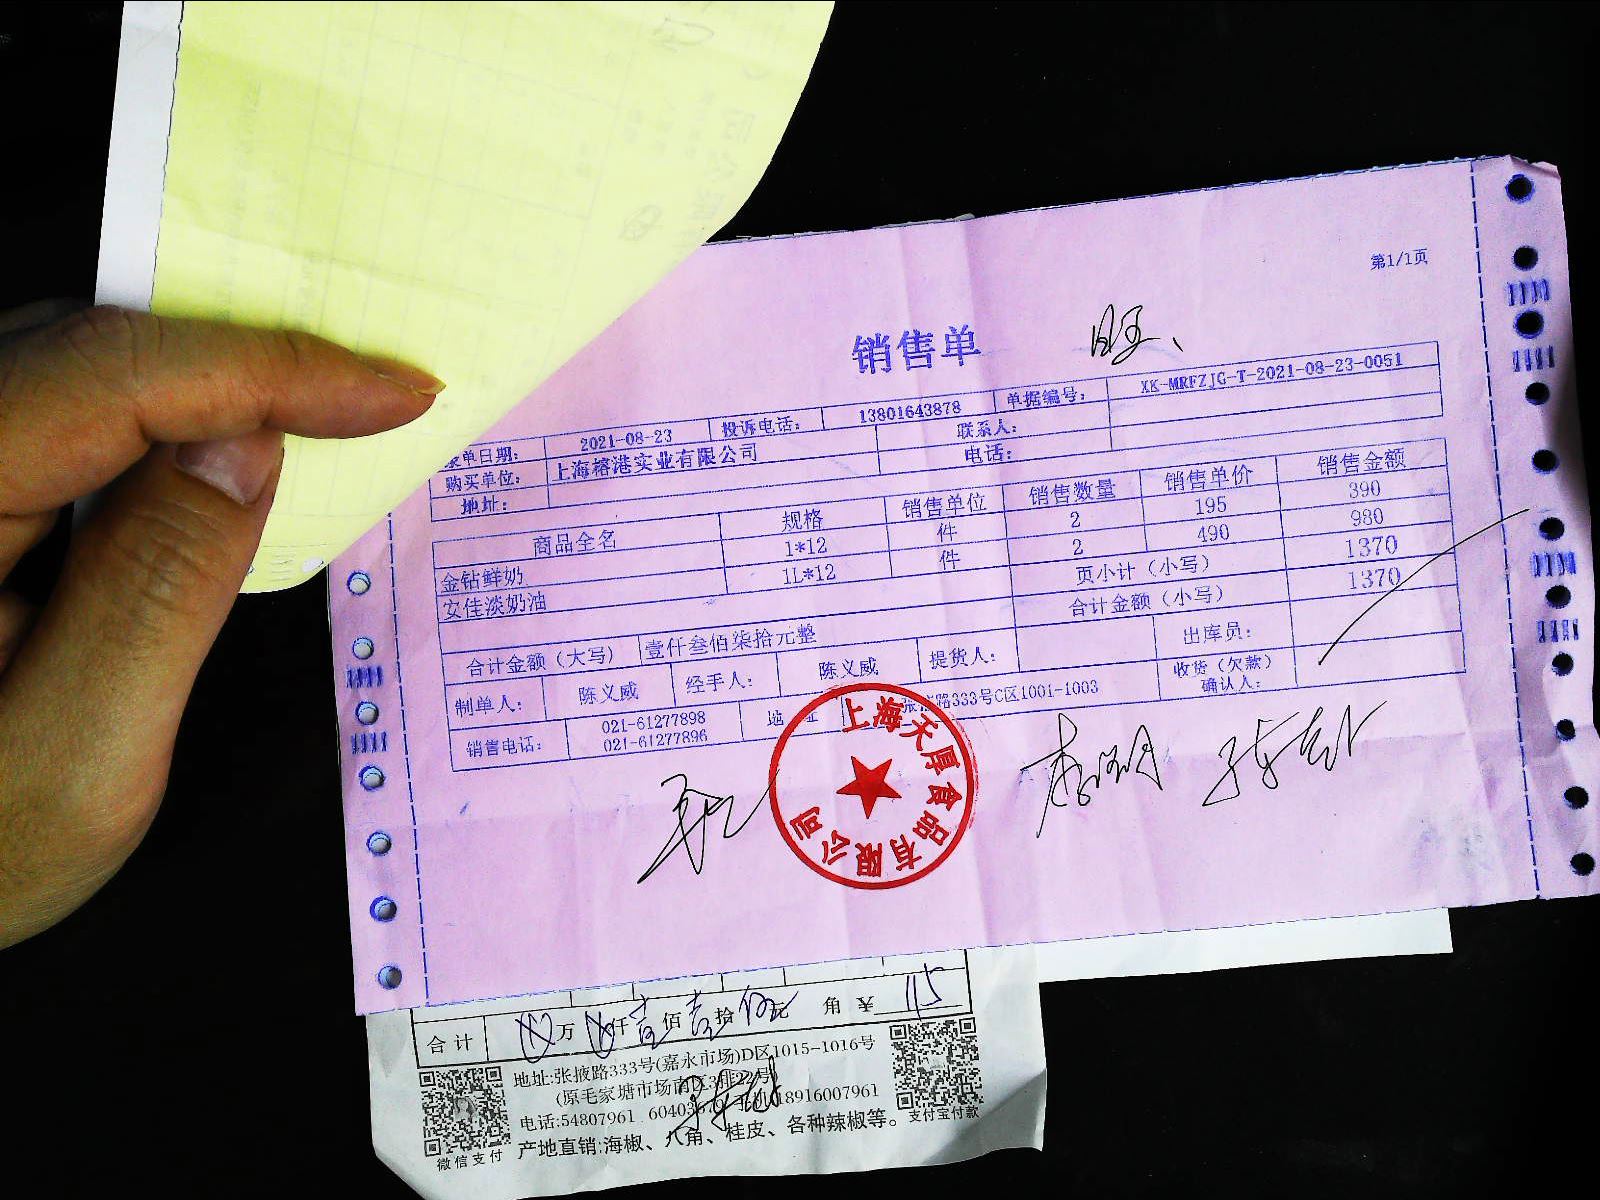 第1/1页
销售单 旺、
录单日期: 2021-08-23 投诉电话: 13801643878 单据编号: XK-MRFZJG-T-2021-08-23-0051
购买单位: 上海榕港实业有限公司 联系人:
地址: 电话:
商品全名 规格 销售单位 销售数量 销售单价 销售金额
金钻鲜奶 1*12 件 2 195 390
安佳淡奶油 1L*12 件 2 490 980
页小计（小写） 1370
合计金额（小写） 1370
合计金额（大写） 壹仟叁佰柒拾元整
制单人: 陈义威 经手人: 陈义威 提货人: 出库员:
销售电话: 021-61277898 021-61277896 地址 张掖路333号C区1001-1003 收货（欠款）确认人:
上海天厚食品有限公司
合计 万 仟 壹佰 壹拾 伍元 角 ¥ 115
地址:张掖路333号(嘉永市场)D区1015-1016号
(原毛家塘市场南区3排22号)
电话:54807961 手机:18916007961
产地直销:海椒、八角、桂皮、各种辣椒等。
微信支付
支付宝付款